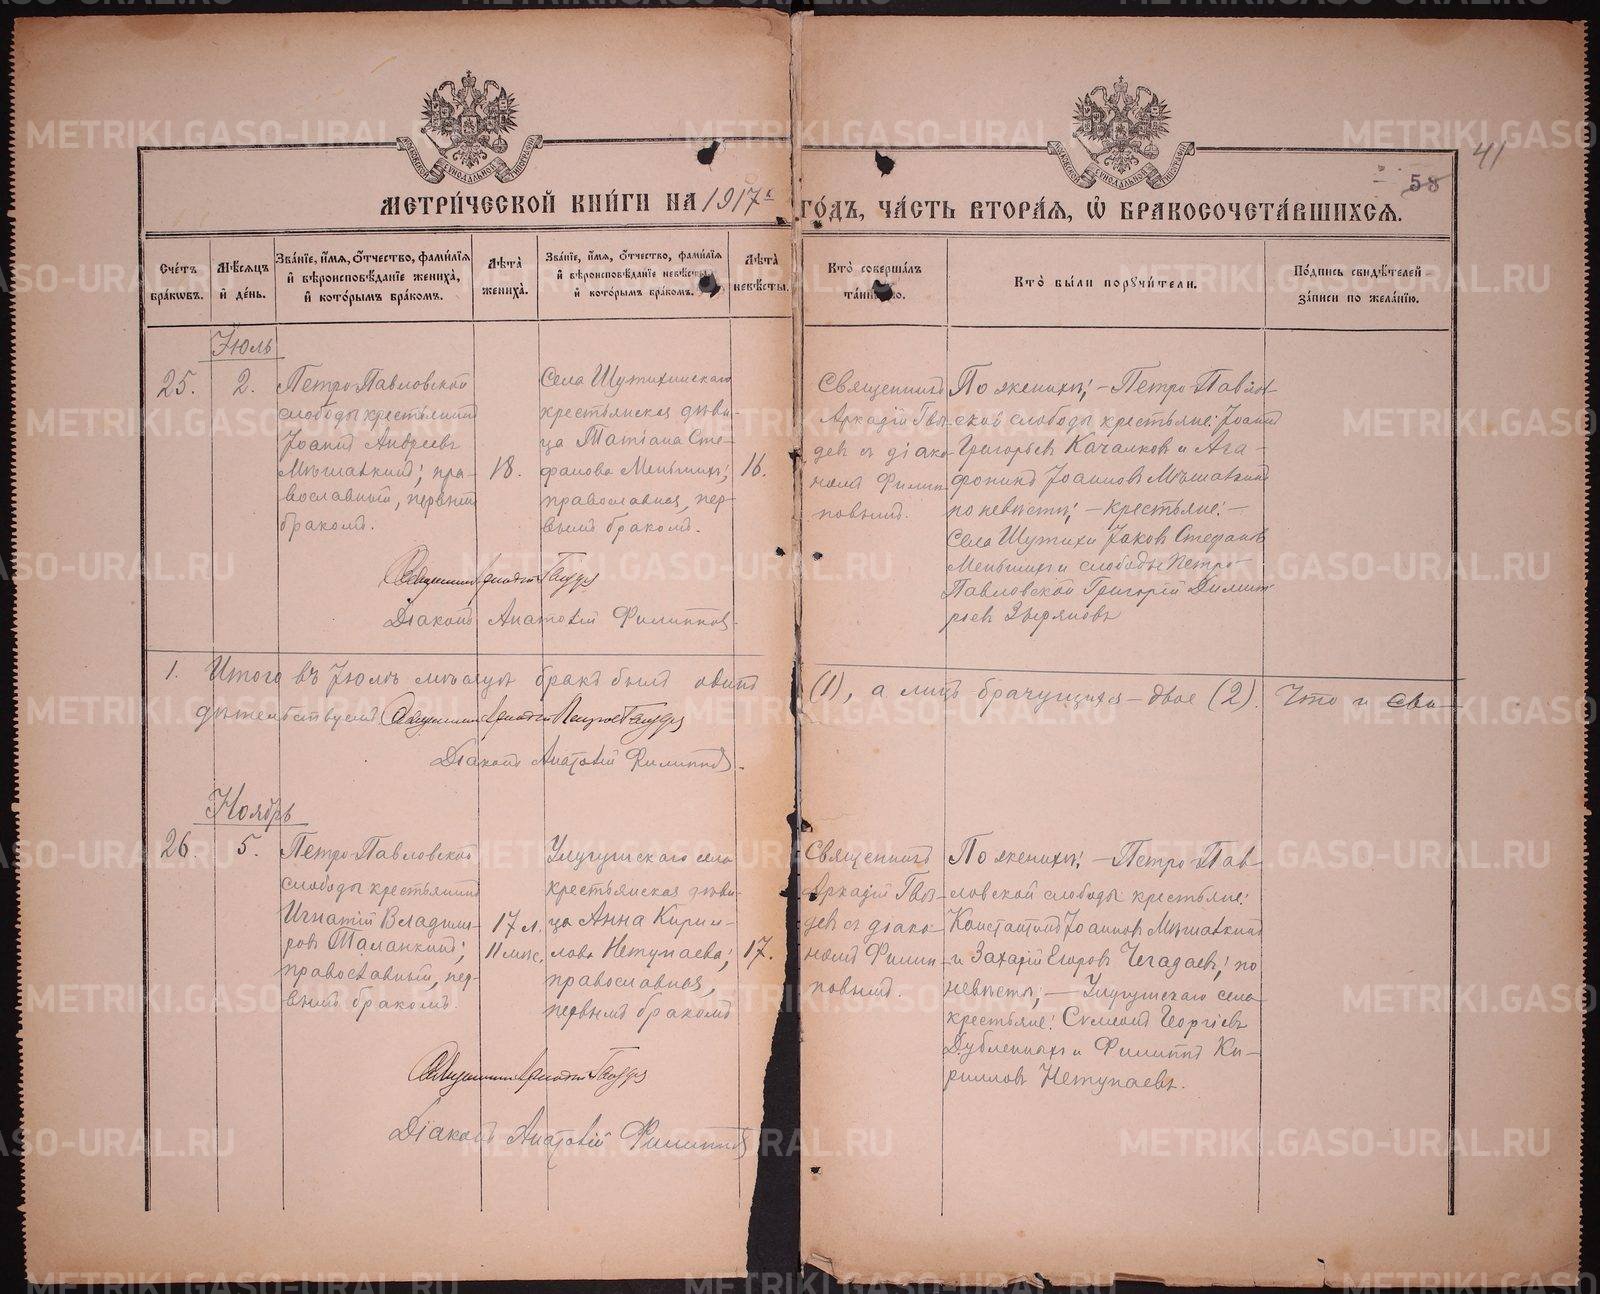 41
58
МЕТРИ́ЧЕСКОЙ КНИ́ГИ НА 1917й ГО́ДЪ, ЧА́СТЬ ВТОРА́Я, Ѡ҆ БРАКОСОЧЕТА́ВШИХСЯ.
Сче́тъ бра́кѡвъ.
Мѣ́сяцъ и҆ де́нь.
Зва́нїе, и҆́мя, ѻ҆́тчество, фами́лїя и҆ вѣроисповѣ́данїе жениха̀, и҆ кото́рымъ бра́комъ.
Лѣ́та жениха̀.
Зва́нїе, и҆́мя, ѻ҆́тчество, фами́лїя и҆ вѣроисповѣ́данїе невѣ́сты, и҆ кото́рымъ бра́комъ.
Лѣ́та невѣ́сты.
Кто̀ соверша́лъ
Кто̀ бы́ли порꙋчи́тели.
По́дпись свидѣ́телей
за́писи по жела́нїю.
Іюль
25.
2.
Петро-Павловской
слободы крестьянинъ
Іоаннъ Андреевъ
Мѣшавкинъ; пра-
вославный, первымъ
бракомъ.
18.
Села Шутихинскаго
крестьянская дѣви-
ца Татіана Сте-
фанова Меньшихъ;
православная, пер-
вымъ бракомъ.
16.
Священникъ
Аркадій Гвоз-
девъ съ діако-
номъ Филип-
повымъ.
По женихѣ: – Петро-Павлов-
ской слободы крестьяне: Іоаннъ
Григорьевъ Качалковъ и Ага-
фоникъ Іоанновъ Мѣшавкинъ
по невѣстѣ; – крестьяне: –
Села Шутихи Іаковъ Стефановъ
Меньшихъ и слободы Петро-
Павловской Григорій Димит-
ріевъ Зыряновъ
Священникъ Аркадій Гвоздевъ
Діаконъ Анатолій Филипповъ.
1. Итого въ Іюлѣ мѣсяцѣ бракъ былъ одинъ (1), а лицъ брачущихся – двое (2). Что и сви-
дѣтельствуемъ Священникъ Аркадій Гвоздевъ
Діаконъ Анатолій Филипповъ.
Ноябрь
26.
5.
Петро-Павловской
слободы крестьянинъ
Игнатій Владими-
ровъ Таланкинъ;
православный, пер-
вымъ бракомъ.
17 л.
11 мѣс.
крестьянская дѣви-
ца Анна Кирил-
лова Нетупаева;
православная,
первымъ бракомъ
17.
Священникъ
Аркадій Гвоз-
девъ съ діако-
номъ Филип-
повымъ.
По женихѣ: – Петро-Пав-
ловской слободы крестьяне:
Константинъ Іоанновъ Мѣшавкинъ
и Захарій Егоровъ Чегадаевъ; по
невѣстѣ; –
крестьяне: Симеонъ Георгіевъ
Дубленныхъ и Филиппъ Ки-
рилловъ Нетупаевъ.
Священникъ Аркадій Гвоздевъ
Діаконъ Анатолій Филипповъ
METRIKI.GASO-URAL.RU